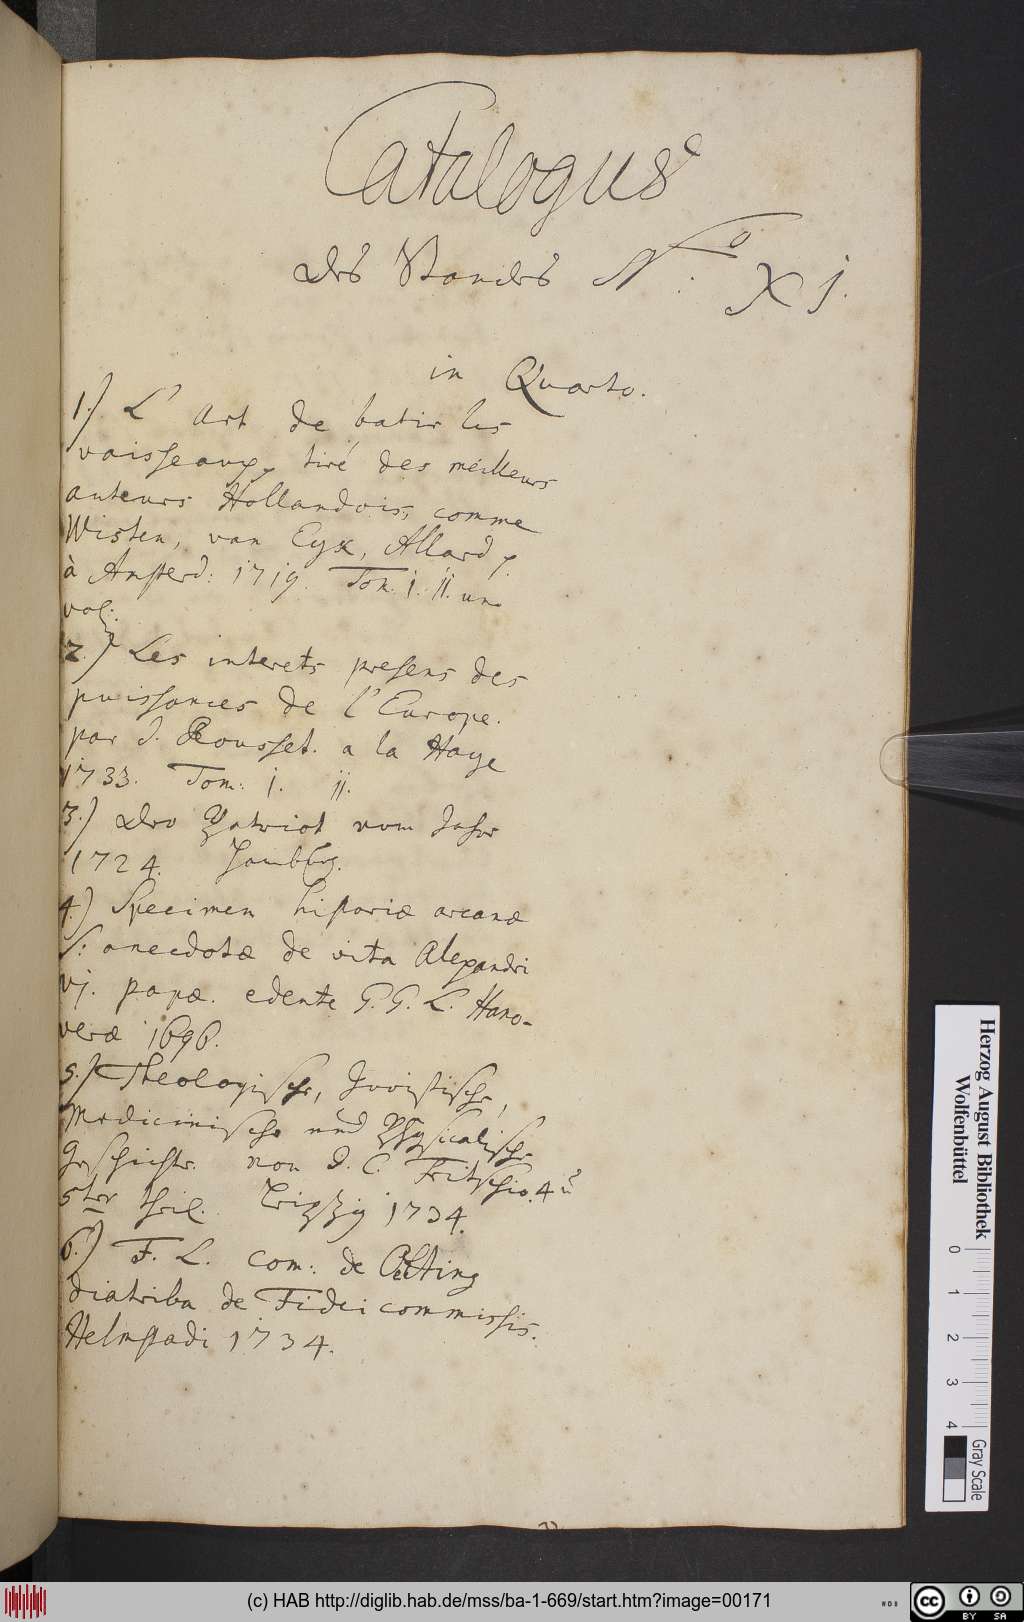 Catalogus
des Standes No. XI.
in Quarto.
1.) L' Art de batir les
vaisseaux, tiré des meilleurs
auteurs Hollandois, comme
Wisten, van Eyx, Allard
à Amsterd: 1719. Tom. I. II. uno
vol:
2.) Les interets presens des
puissances de l'Europe.
par J. Rousset. a la Haye
1733. Tom: I. II.
3.) Der Patriot vom Jahr
1724. Hamburg.
4.) Specimen historiæ arcanæ
S: anecdotæ de vita Alexandri
VI. papæ. edente G. G. L. Hano-
veræ 1696.
5.) Theologische, Juristische,
Medicinische und Physicalische
Geschichte. von D. C. Fritschio. 4 u
5ter theil. Leipzig 1734.
6.) F. L. com: de Oetting
diatriba de Fideicommissis.
Helmstadi 1734.
Herzog August Bibliothek
Wolfenbüttel
0 1 2 3 4
Gray Scale
(c) HAB http://diglib.hab.de/mss/ba-1-669/start.htm?image=00171
cc BY SA